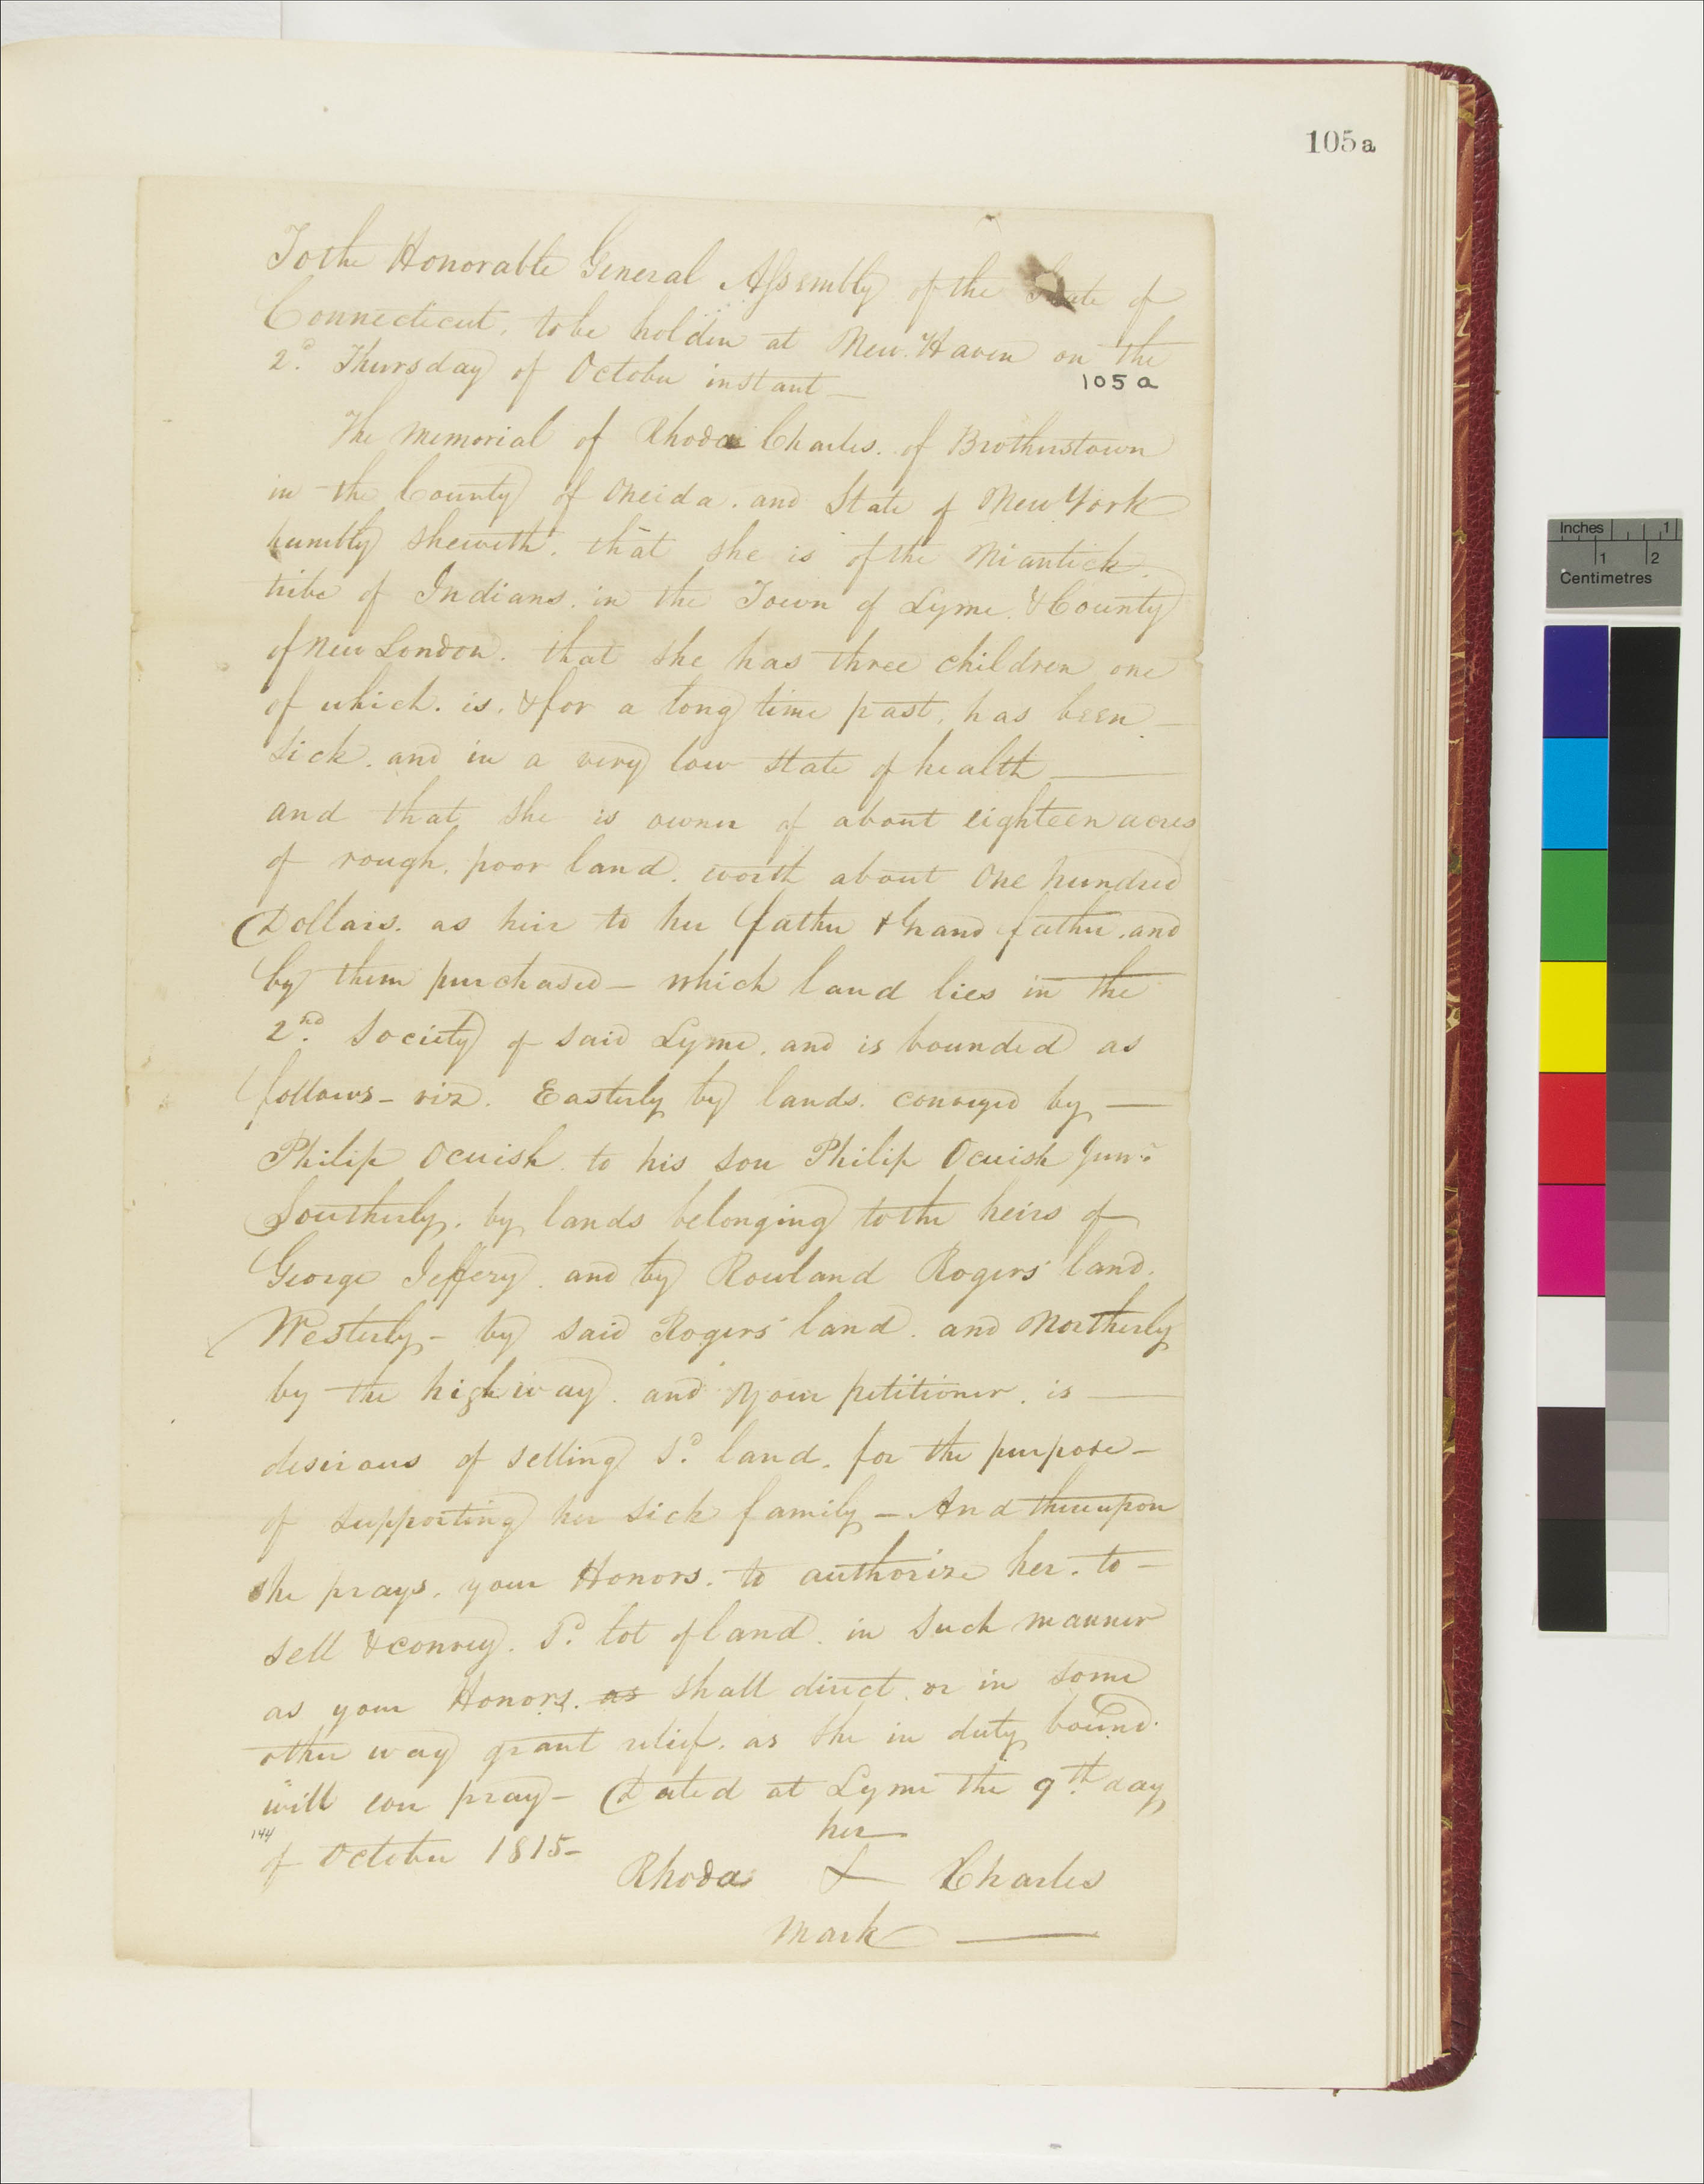 105a
To the Honorable General Assembly of the State of
Connecticut, to be holden at New Haven on the
2d. Thursday of October instant —
105a
The Memorial of Rhoda Charles. of Brotherstown
in the County of Oneida. and State of New York
humbly sheweth. that she is of the Niantick
tribe of Indians. in the Town of Lyme. & County
of New London. that she has three children one
of which. is. & for a long time past, has been —
sick. and in a very low state of health —
and that she is owner of about eighteen acres
of rough, poor land. worth about One hundred
Dollars. as heir to her father & Grand father. and
by them purchased — which land lies in the
2nd. Society of said Lyme. and is bounded as
follows — viz. Easterly by lands. conveyed by —
Philip Ocuish to his son Philip Ocuish Junr.
Southerly. by lands belonging to the heirs of
George Jeffery. and by Rowland Rogers' land.
Westerly — by said Rogers' land. and Northerly
by the highway. and your petitioner. is —
desirous of selling sd. land. for the purpose —
of supporting her sick family — And thereupon
she prays. your Honors. to authorize her. to —
sell & convey. sd. lot of land. in such manner
as your Honors. as shall direct. or in some
other way grant relief. as she in duty bound.
will ever pray — Dated at Lyme the 9th. day
144
of October 1815 —
her
Rhoda X Charles
mark —
Inches 1
1 2
Centimetres